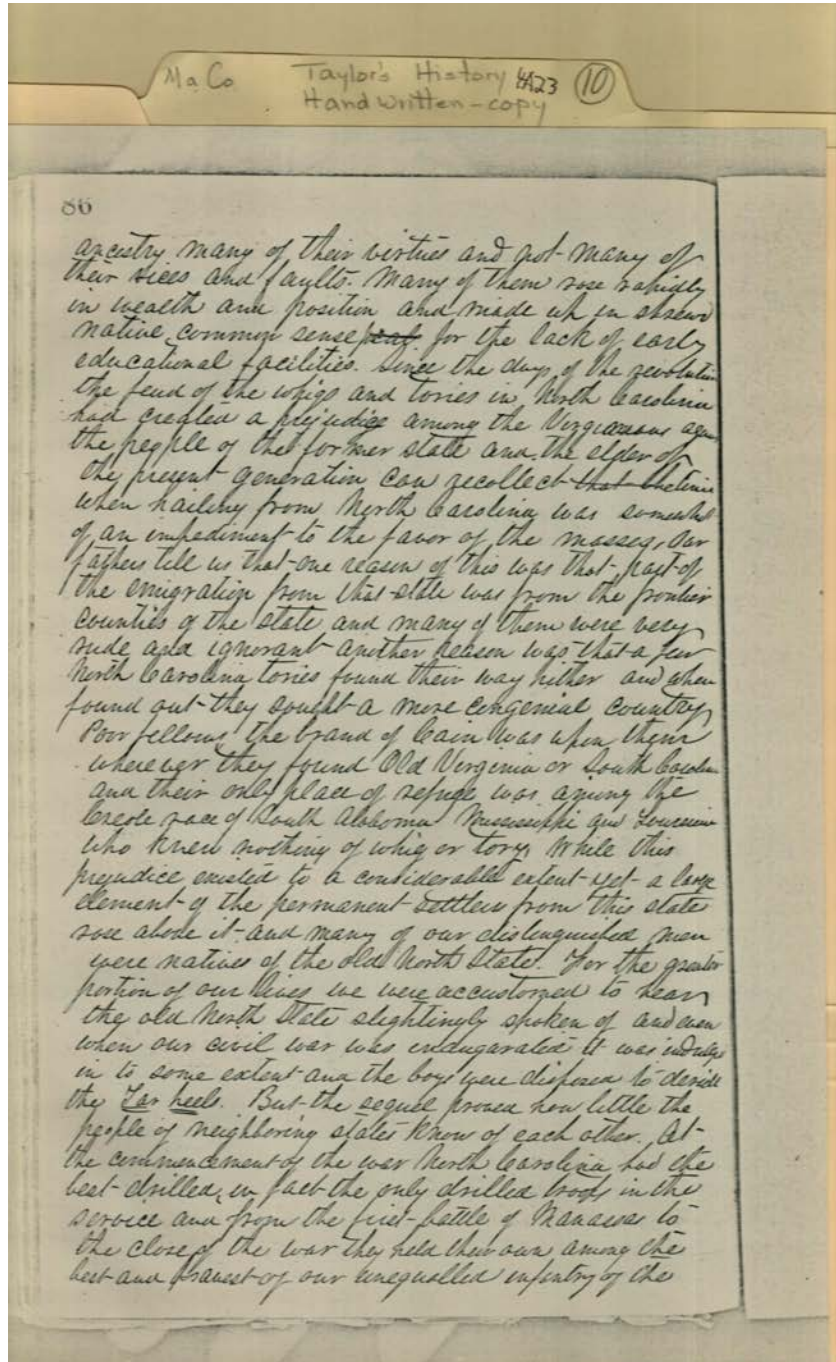 Ma Co Taylor's History 4A23 10
Handwritten - copy
86
ancestry many of their virtues and not many of
their vices and faults. Many of them rose rapidly
in wealth and position and made up in shrewd
native common sense for the lack of early
educational facilities. Since the days of the revolution
the feud of the whigs and tories in North Carolina
had created a prejudice among the Virginians again
the people of the former state and the elder of
the present generation can recollect that the time
when hailing from North Carolina was somewhat
of an impediment to the favor of the masses, Our
fathers tell us that one reason of this was that part of
the emigration from that state was from the frontier
counties of the state and many of them were very
rude and ignorant another reason was that a few
North Carolina tories found their way hither and when
found out they sought a more congenial country
Poor fellows the brand of Cain was upon them
wherever they found Old Virginia or South Carolina
and their only place of refuge was among the
Creole race of South Alabama Mississippi and Louisiana
who knew nothing of whig or tory. While this
prejudice existed to a considerable extent yet a large
element of the permanent settlers from this state
rose above it and many of our distinguished men
were natives of the old North State. For the greater
portion of our lives we were accustomed to hear
the old North State slightingly spoken of and even
when our civil war was enaugarated it was indulged
in to some extent and the boys were disposed to deride
the Tar heels. But the sequel proved how little the
people of neighboring states know of each other. At
the commencement of the war North Carolina had the
best drilled, in fact the only drilled troops in the
service and from the first battle of Manassas to
the close of the war they held their own among the
best and bravest of our unequalled infantry of the